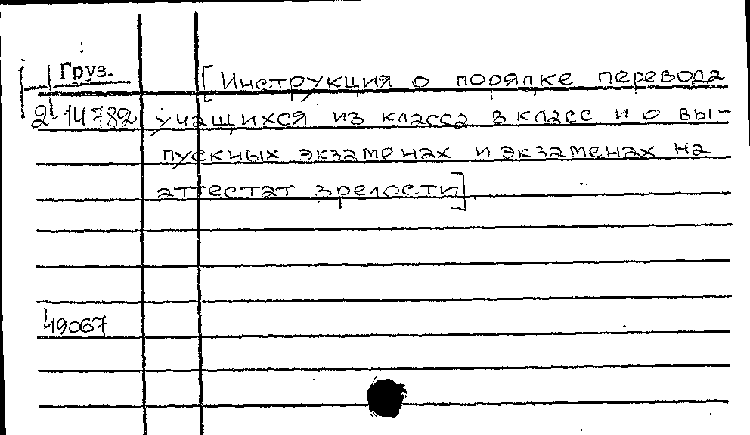 Груз.
[Инструкция о порядке перевода
2-14782 учащихся из класса в класс и о вы-
пускных экзаменах и экзаменах на
аттестат зрелости]
49067